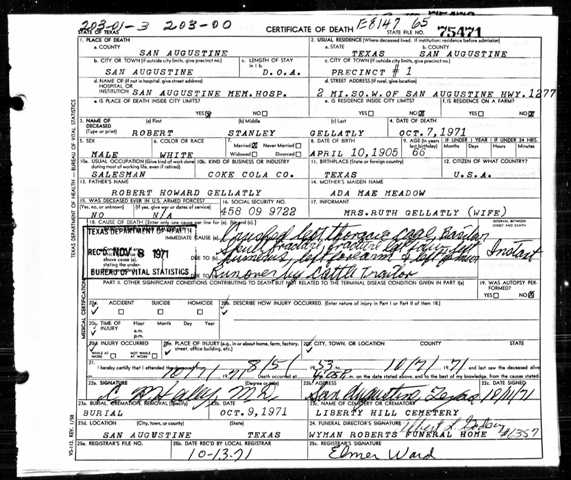 203-01-3 203-00 E8147 65
STATE OF TEXAS CERTIFICATE OF DEATH STATE FILE NO. 75471
1. PLACE OF DEATH 2. USUAL RESIDENCE (Where deceased lived. If institution: residence before admission)
a. COUNTY a. STATE b. COUNTY
SAN AUGUSTINE TEXAS SAN AUGUSTINE
b. CITY OR TOWN (If outside city limits, give precinct no.) c. LENGTH OF STAY c. CITY OR TOWN (If outside city limits, give precinct no.)
SAN AUGUSTINE D.O.A. PRECINCT # 1
d. NAME OF (If not in hospital, give street address) d. STREET ADDRESS (If rural, give location)
HOSPITAL OR
INSTITUTION SAN AUGUSTINE MEM.HOSP. 2 MI.SO.W.OF SAN AUGUSTINE HWY.1277
e. IS PLACE OF DEATH INSIDE CITY LIMITS? e. IS RESIDENCE INSIDE CITY LIMITS? f. IS RESIDENCE ON A FARM?
YES NO YES NO YES NO
3. NAME OF DECEASED (Type or print) (a) First (b) Middle (c) Last 4. DATE OF DEATH
ROBERT STANLEY GELLATLY OCT.7,1971
5. SEX 6. COLOR OR RACE 7. Married Never Married Widowed Divorced 8. DATE OF BIRTH 9. AGE (In years last birthday) IF UNDER 1 YEAR IF UNDER 24 HRS.
MALE WHITE APRIL 10,1905 66
10a. USUAL OCCUPATION (Give kind of work done during most of working life, even if retired) 10b. KIND OF BUSINESS OR INDUSTRY 11. BIRTHPLACE (State or foreign country) 12. CITIZEN OF WHAT COUNTRY?
SALESMAN COKE COLA CO. TEXAS U.S.A.
13. FATHER'S NAME 14. MOTHER'S MAIDEN NAME
ROBERT HOWARD GELLATLY ADA MAE MEADOW
15. WAS DECEASED EVER IN U.S. ARMED FORCES? 16. SOCIAL SECURITY NO. 17. INFORMANT
NO N/A 458 09 9722 MRS.RUTH GELLATLY (WIFE)
18. CAUSE OF DEATH INTERVAL BETWEEN ONSET AND DEATH
TEXAS DEPARTMENT OF HEALTH
REC'D NOV 8 1971
BUREAU OF VITAL STATISTICS
IMMEDIATE CAUSE (a) Crushed left thoracic cage
humerus, left forearm & left Instant
Run over by Cattle Trailor
PART II. OTHER SIGNIFICANT CONDITIONS CONTRIBUTING TO DEATH BUT NOT RELATED TO THE TERMINAL DISEASE CONDITION GIVEN IN PART I (a) 19. WAS AUTOPSY PERFORMED?
YES NO
20a. ACCIDENT SUICIDE HOMICIDE 20b. DESCRIBE HOW INJURY OCCURRED. (Enter nature of injury in Part I or Part II of item 18.)
20c. TIME OF INJURY Hour Month Day Year
a.m.
p.m.
20d. INJURY OCCURRED 20e. PLACE OF INJURY (e.g., in or about home, farm, factory, street, office building, etc.) 20f. CITY, TOWN, OR LOCATION COUNTY STATE
WHILE AT WORK NOT WHILE AT WORK
21. I hereby certify that I attended the deceased from 10/7/71 10/7/71 and last saw the deceased alive
22a. SIGNATURE (Degree or title) 22b. ADDRESS 22c. DATE SIGNED
M.D. San Augustine, Texas 10/11/71
23a. BURIAL, CREMATION, REMOVAL (Specify) 23b. DATE 23c. NAME OF CEMETERY OR CREMATORY
BURIAL OCT.9,1971 LIBERTY HILL CEMETERY
23d. LOCATION (City, town, or county) (State) 24. FUNERAL DIRECTOR'S SIGNATURE
SAN AUGUSTINE TEXAS WYMAN ROBERTS FUNERAL HOME #1357
25a. REGISTRAR'S FILE NO. 25b. DATE REC'D BY LOCAL REGISTRAR 25c. REGISTRAR'S SIGNATURE
10-13-71 Elmer Ward